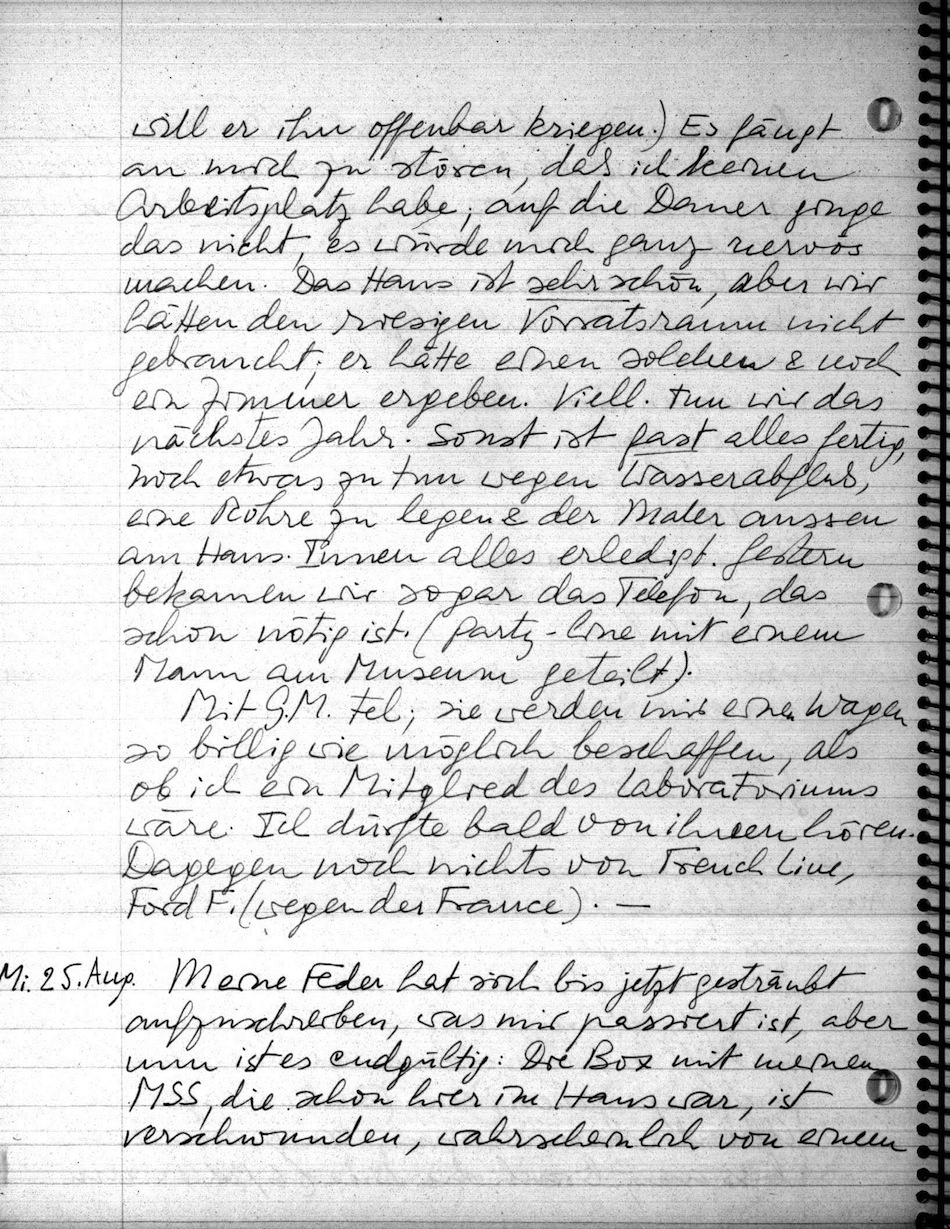 will er ihn offenbar kriegen.) Es fängt
an mich zu stören, daß ich keinen
Arbeitsplatz habe; auf die Dauer ginge
das nicht, es würde mich ganz nervös
machen. Das Haus ist sehr schön, aber wir
hätten den riesigen Vorratsraum nicht
gebraucht; er hätte einen solchen & noch
ein Zimmer ergeben. Viell. tun wir das
nächstes Jahr. Sonst ist fast alles fertig,
noch etwas zu tun wegen Wasserabfluß,
eine Röhre zu legen & der Maler aussen
am Haus. Innen alles erledigt. Gestern
bekamen wir sogar das Telefon, das
schon nötig ist. (party-line mit einem
Mann am Museum geteilt).
Mit G.M. tel; sie werden mir einen Wagen
so billig wie möglich beschaffen, als
ob ich ein Mitglied des Laboratoriums
wäre. Ich dürfte bald von ihnen hören.
Dagegen noch nichts von French Line,
Ford F. (wegen der France). —
Mi. 25. Aug. Meine Feder hat sich bis jetzt gesträubt
aufzuschreiben, was mir passiert ist, aber
nun ist es endgültig: Die Box mit meinen
MSS, die schon hier im Haus war, ist
verschwunden, wahrscheinlich von einem